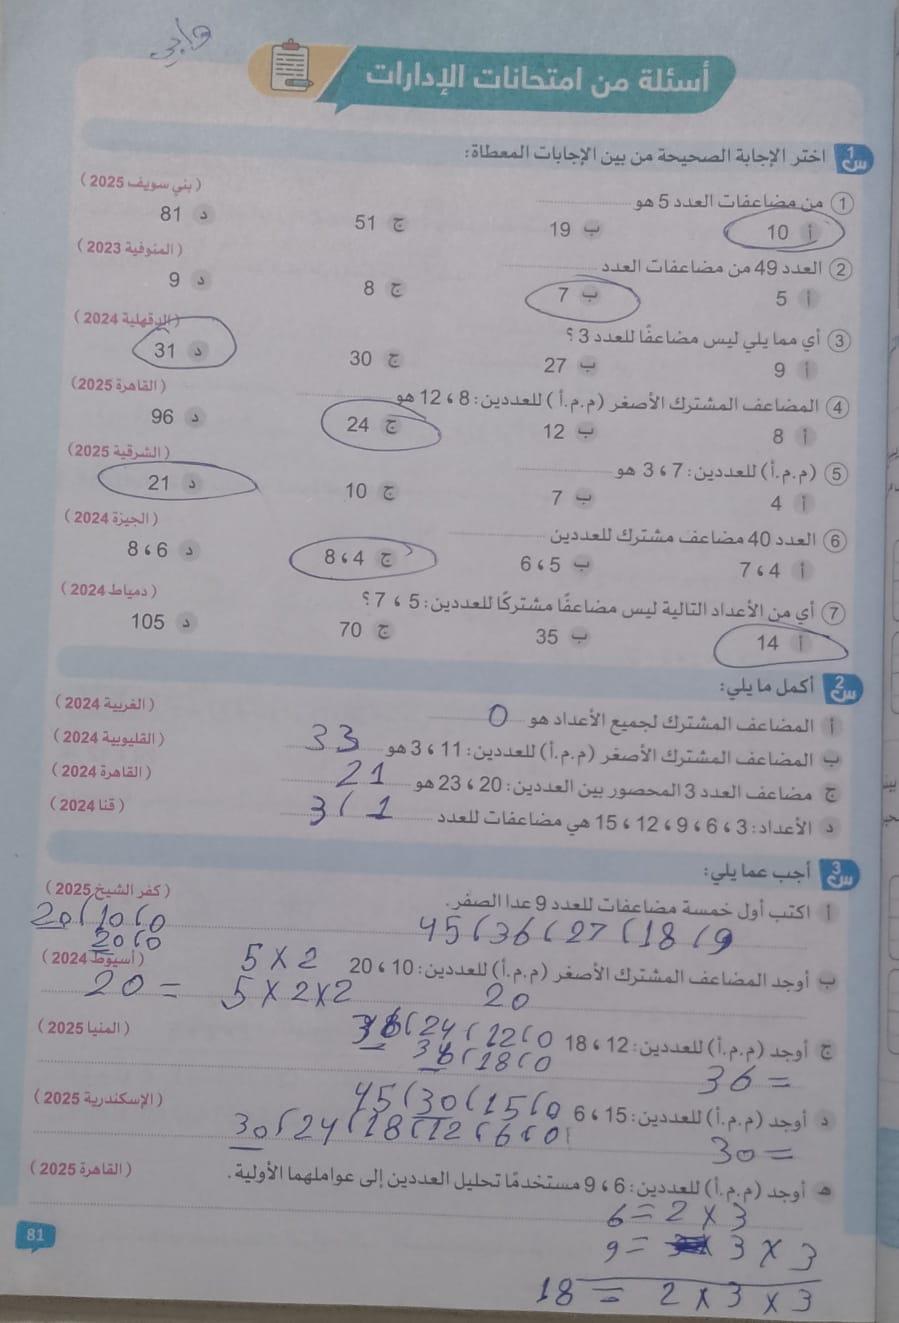 واجب
أسئلة من امتحانات الإدارات
س1 اختر الإجابة الصحيحة من بين الإجابات المعطاة:
1 من مضاعفات العدد 5 هو ............ (بني سويف 2025)
أ 10 ب 19 ج 51 د 81
2 العدد 49 من مضاعفات العدد ............ (المنوفية 2023)
أ 5 ب 7 ج 8 د 9
3 أي مما يلي ليس مضاعفًا للعدد 3؟ (الدقهلية 2024)
أ 9 ب 27 ج 30 د 31
4 المضاعف المشترك الأصغر (م.م.أ) للعددين: 8 ، 12 هو ............ (القاهرة 2025)
أ 8 ب 12 ج 24 د 96
5 (م.م.أ) للعددين: 7 ، 3 هو ............ (الشرقية 2025)
أ 4 ب 7 ج 10 د 21
6 العدد 40 مضاعف مشترك للعددين ............ (الجيزة 2024)
أ 4 ، 7 ب 5 ، 6 ج 4 ، 8 د 6 ، 8
7 أي من الأعداد التالية ليس مضاعفًا مشتركًا للعددين: 5 ، 7؟ (دمياط 2024)
أ 14 ب 35 ج 70 د 105
س2 أكمل ما يلي:
أ المضاعف المشترك لجميع الأعداد هو 0 (الغربية 2024)
ب المضاعف المشترك الأصغر (م.م.أ) للعددين: 11 ، 3 هو 33 (القليوبية 2024)
ج مضاعف العدد 3 المحصور بين العددين: 20 ، 23 هو 21 (القاهرة 2024)
د الأعداد: 3 ، 6 ، 9 ، 12 ، 15 هي مضاعفات للعدد 1 ، 3 (قنا 2024)
س3 أجب عما يلي:
أ اكتب أول خمسة مضاعفات للعدد 9 عدا الصفر. (كفر الشيخ 2025)
9 ، 18 ، 27 ، 36 ، 45
0 ، 10 ، 20
0 ، 20
ب أوجد المضاعف المشترك الأصغر (م.م.أ) للعددين: 10 ، 20 (أسيوط 2024)
5 × 2
20
5 × 2 × 2 = 20
ج أوجد (م.م.أ) للعددين: 12 ، 18 (المنيا 2025)
0 ، 12 ، 24 ، 36
0 ، 18 ، 36
= 36
د أوجد (م.م.أ) للعددين: 15 ، 6 (الإسكندرية 2025)
0 ، 15 ، 30 ، 45
0 ، 6 ، 12 ، 18 ، 24 ، 30
= 30
هـ أوجد (م.م.أ) للعددين: 6 ، 9 مستخدمًا تحليل العددين إلى عواملهما الأولية. (القاهرة 2025)
6 = 2 × 3
9 = 3 × 3
18 = 2 × 3 × 3
81